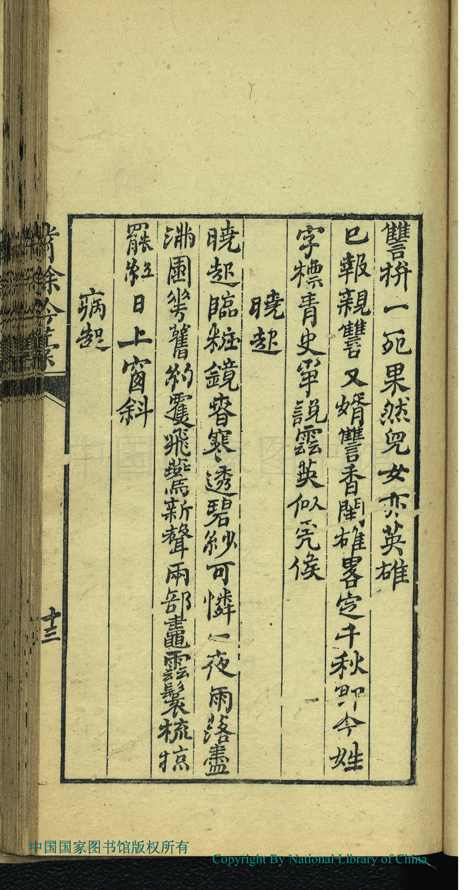 讐拚一死果然兒女亦英雄
已報親讐又婿讐香閨雄畧定千秋即今姓
字標青史爭説雲英似冤侯
曉起
曉起臨粧鏡春寒透碧紗可憐一夜雨落盡
滿園花舊約雙飛燕新聲兩部鼃雲鬟梳掠
罷紅日上窗斜
病起
餘吟草
十三
中国国家图书馆版权所有
Copyright By National Library of China